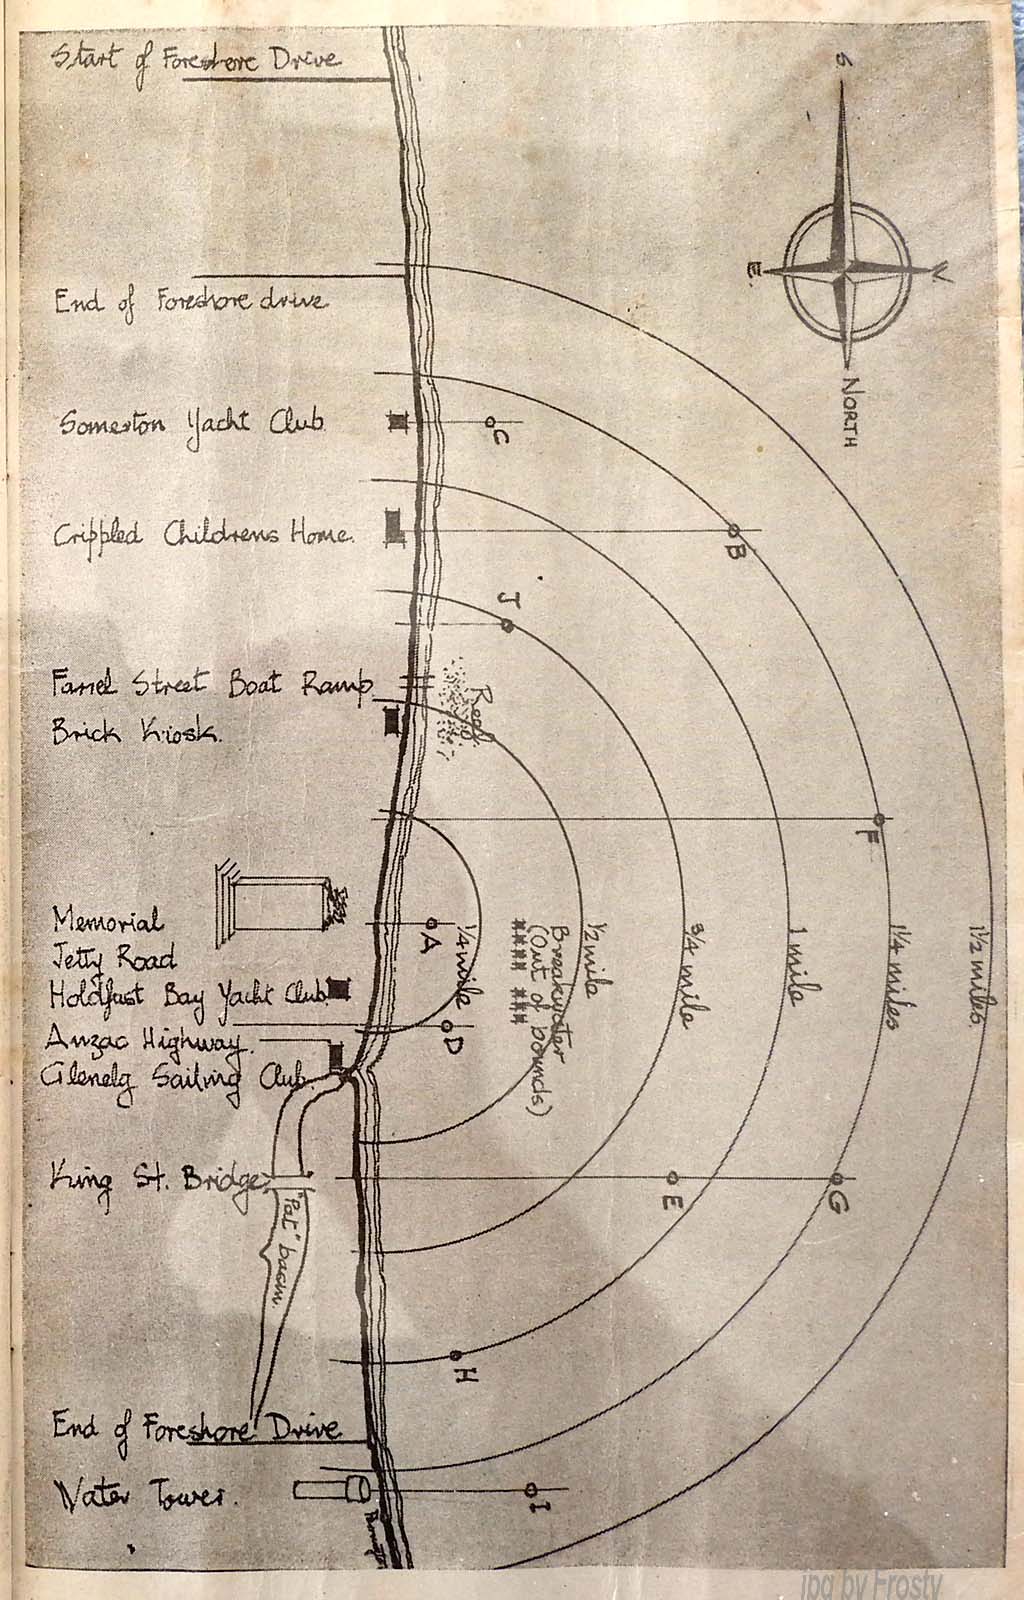 Start of Foreshore Drive
End of Foreshore drive
Somerton Yacht Club
Crippled Childrens Home.
Farrel Street Boat Ramp
Brick Kiosk.
Memorial
Jetty Road
Holdfast Bay Yacht Club
Anzac Highway.
Glenelg Sailing Club.
King St. Bridge
"Pat" basin.
End of Foreshore Drive
Water Tower.
S
E.
W
NORTH
C
B
J
Reef
F
A
1/4 mile
Breakwater
(Out of bounds)
1/2 mile
3/4 mile
1 mile
1 1/4 miles
1 1/2 miles.
D
E
G
H
I
jpg by Frosty